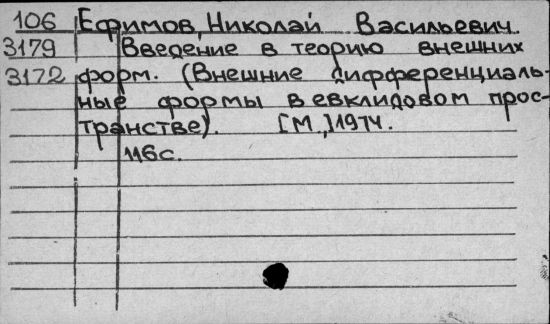 106 Ефимов, Николай Васильевич
3179 Введение в теорию внешних
3172 форм. (Внешние дифференциаль-
ные формы в евклидовом прос-
транстве). [М.,] 1974.
116 с.